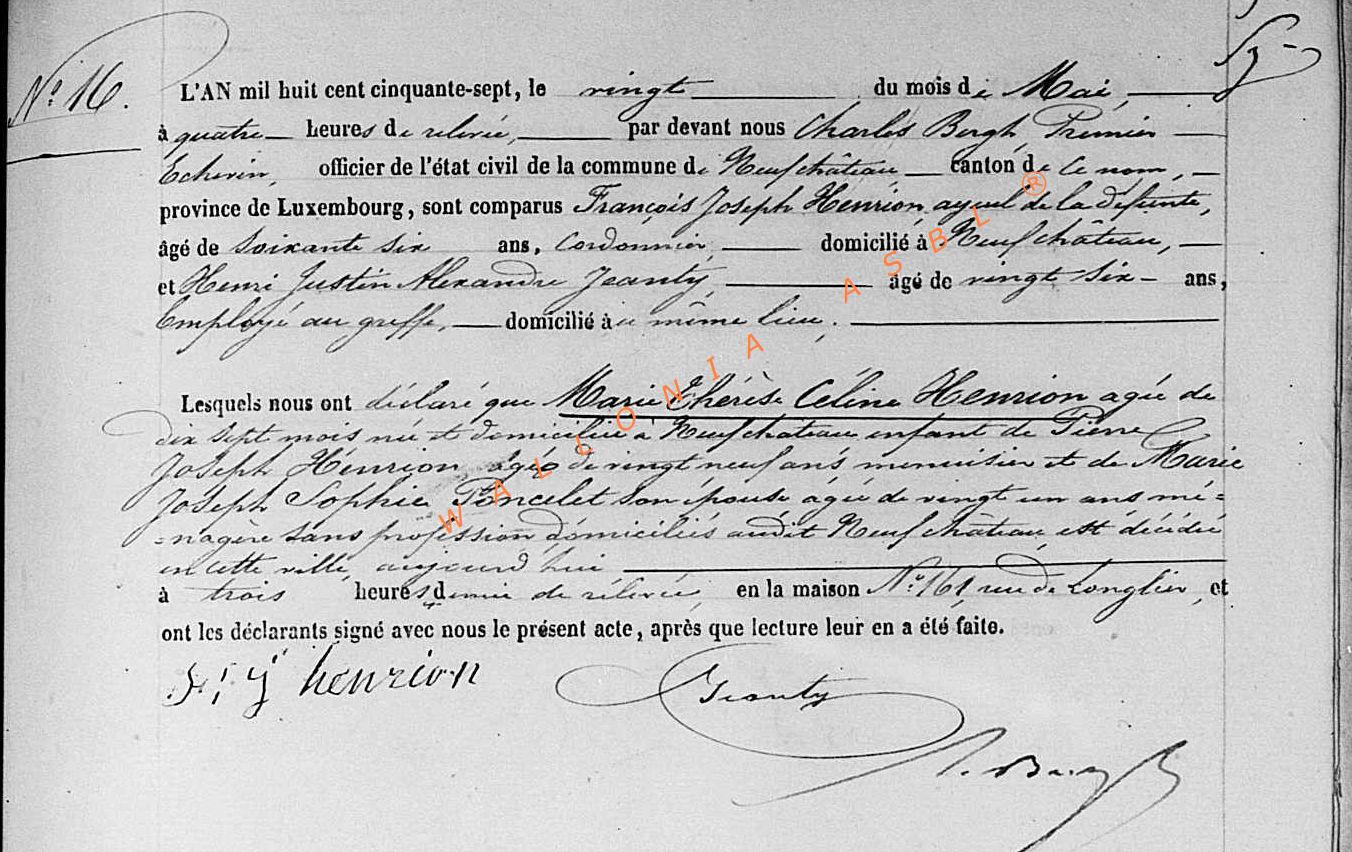 N° 16.
L'AN mil huit cent cinquante-sept, le vingt du mois de Mai,
à quatre heures de relevée, par devant nous Charles Bergh, Premier
Echevin, officier de l'état civil de la commune de Neufchâteau canton de ce nom,
province de Luxembourg, sont comparus François Joseph Henrion ayeul de la défunte,
âgé de soixante six ans, Cordonnier, domicilié à Neufchâteau,
et Henri Justin Alexandre Jeanty, âgé de vingt six ans,
Employé au greffe, domicilié au même lieu.
Lesquels nous ont déclaré que Marie Thérèse Céline Henrion agée de
dix sept mois née et domiciliée à Neufchateau enfant de Pierre
Joseph Henrion agé de vingt neuf ans menuisier et de Marie
Joseph Sophie Poncelet son épouse agée de vingt un ans mé=
=nagère sans profession domiciliés audit Neufchâteau, est décédée
en cette ville, aujourd'hui
à trois heures demie de relevée, en la maison N° 161, rue de Longlier, et
ont les déclarants signé avec nous le présent acte, après que lecture leur en a été faite.
henrion Jeanty
WALLONIA ASBL ®